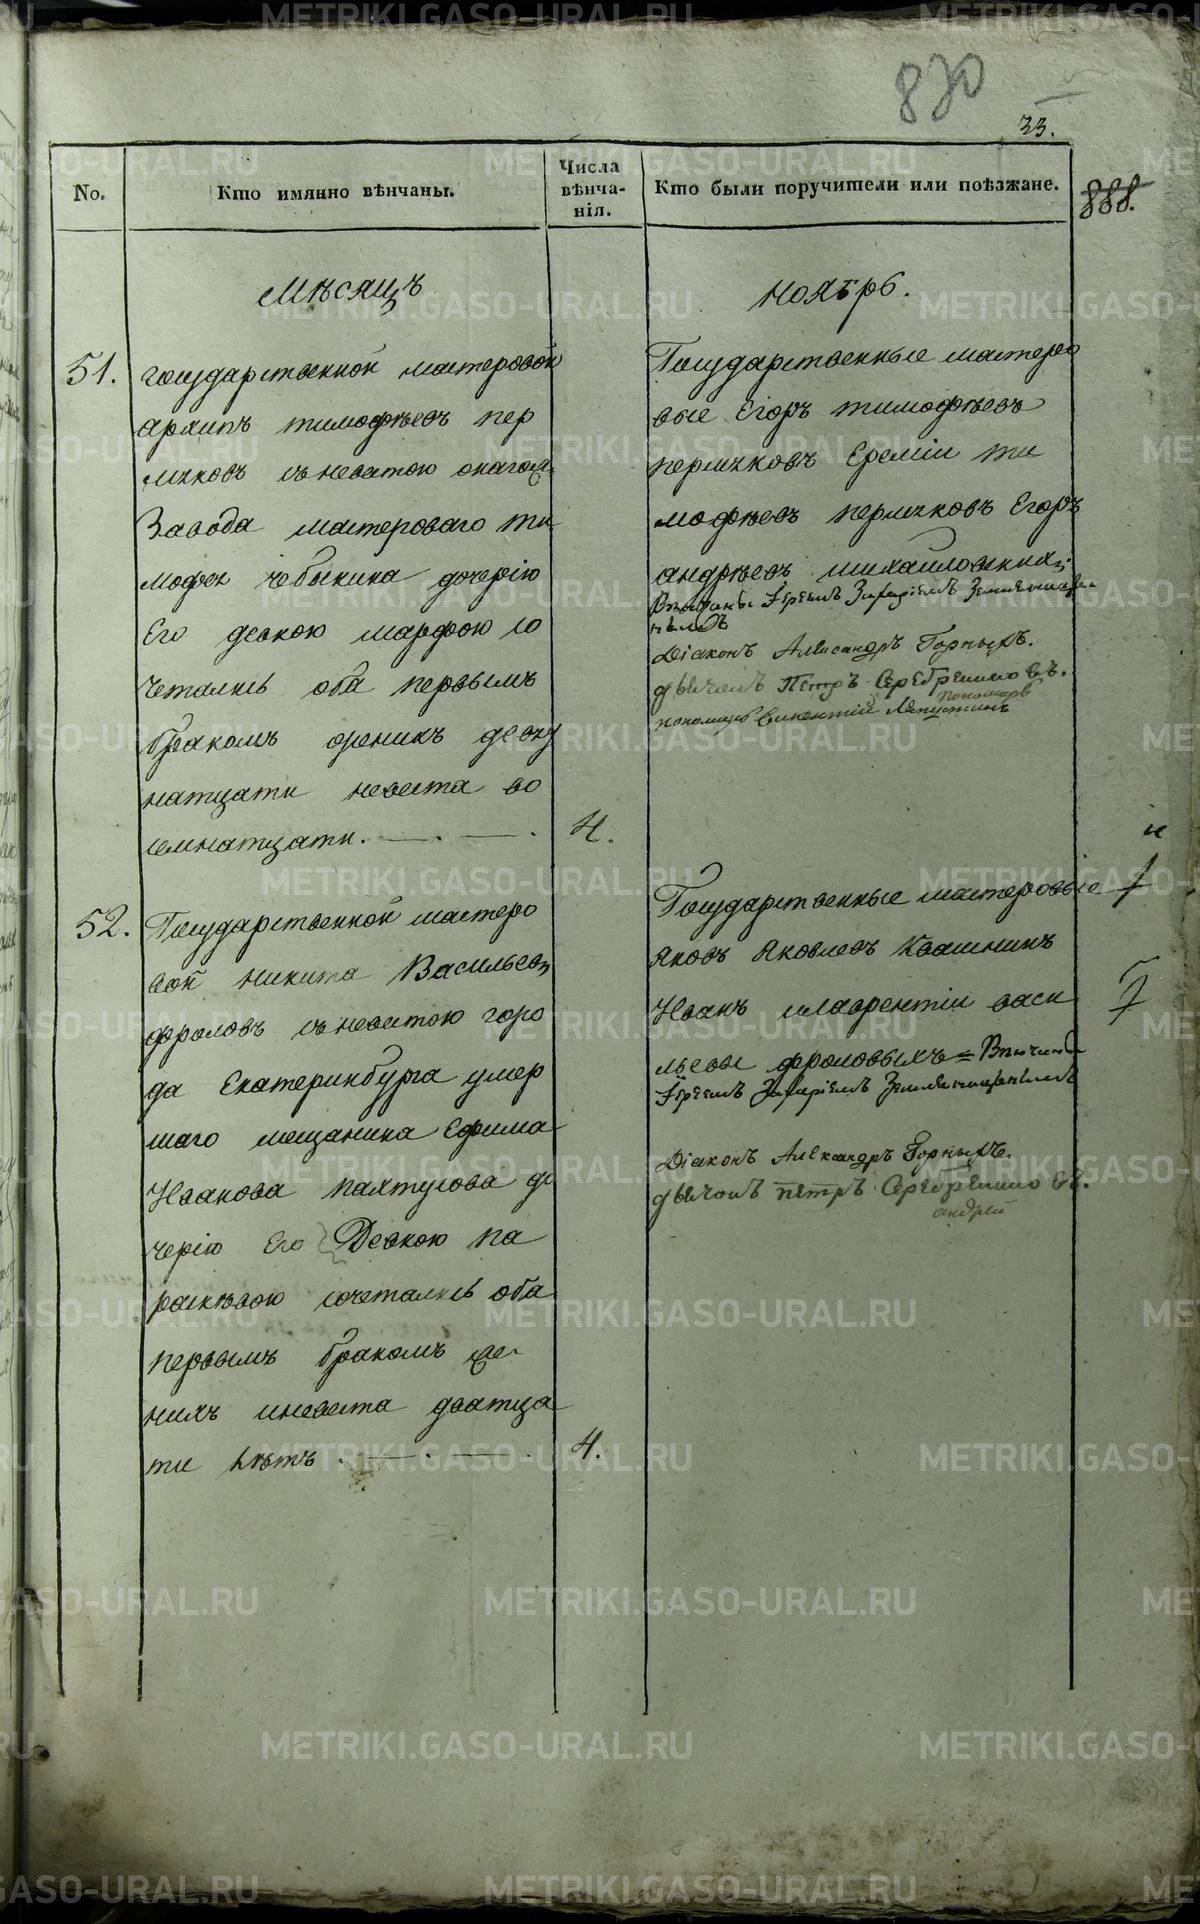 830
33.
No.
Кто имянно вѣнчаны.
Числа вѣнча-нія.
Кто были поручители или поѣзжане.
888.
Мѣсяцъ
Ноябрь.
51.
государственной мастеровой
архипъ тимофѣевъ пер
мяковъ съ невѣстою онагож
Завода мастероваго ти
мофея чебыкина дочерію
Его девкою марфою со
четались оба первымъ
бракомъ женихъ девят
натцати невеста во
семнатцати.
4.
Государственные мастеро
вые Егоръ тимофѣевъ
пермяковъ Еремiи ти
мофѣевъ пермяковъ Егоръ
андрѣевъ михаиловскихъ
Венчаны Іереемъ Захаріемъ
Діаконъ Александръ Горныхъ.
дьячокъ Петръ Серебренниковъ.
пономарь
пономарь Викентій Ляпустинъ
52.
Государственной мастеро
вой никита Васильевъ
фроловъ съ невестою горо
да Екатеринбурга умер
шаго мещанина Ефима
Иванова пахтусова до
черію Его Девкою па
расквою сочетались оба
первымъ бракомъ же-
нихъ и невеста дватца
ти лѣтъ.
4.
Государственные мастеровые
Яковъ Яковлевъ Квашнинъ
Иванъ и лаврентiи васи
льевы фроловыхъ = Венчаны
Іереемъ Захаріемъ
Діаконъ Александръ Горныхъ.
дьячокъ петръ Серебренниковъ.
андрей